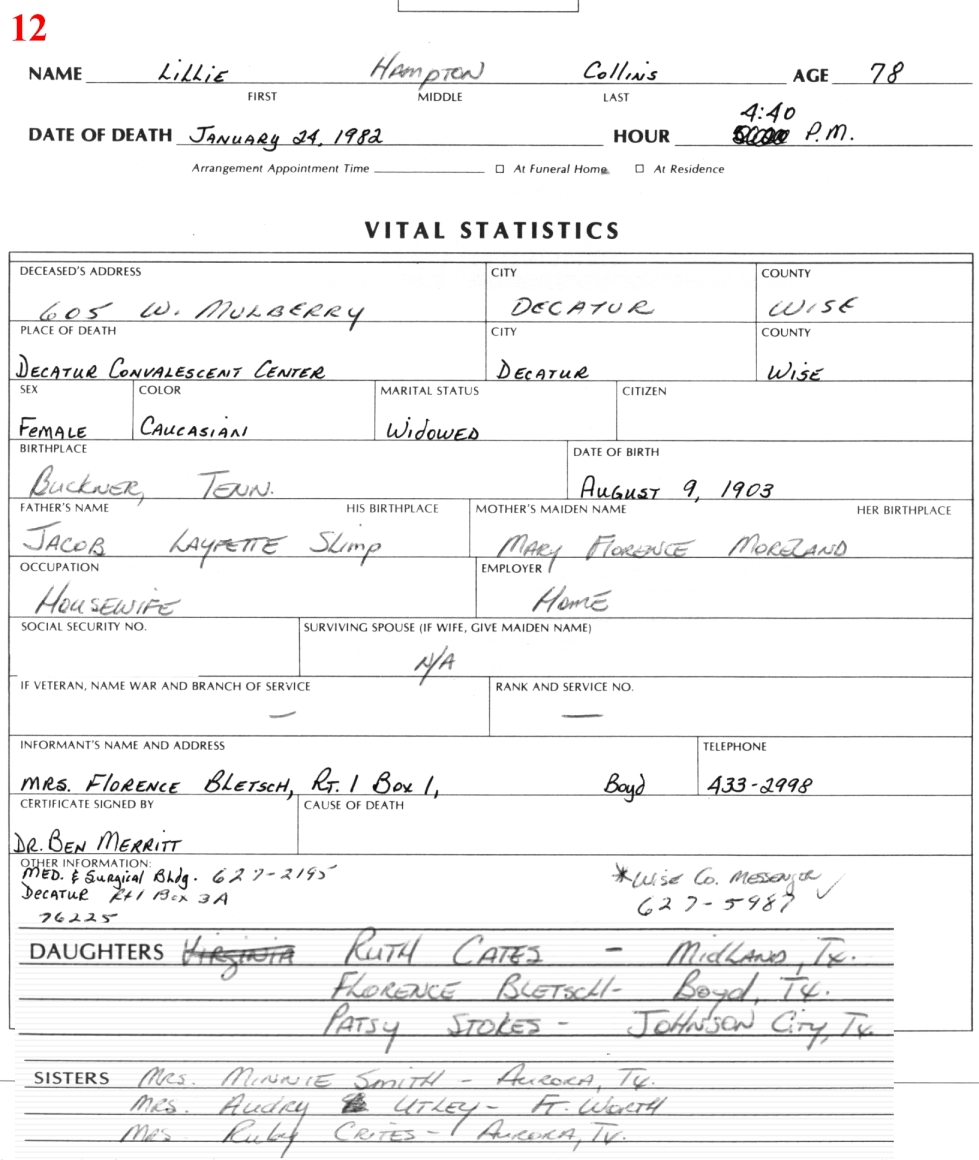 12
NAME Lillie Hampton Collins AGE 78
FIRST MIDDLE LAST
4:40
DATE OF DEATH January 24, 1982 HOUR P.M.
Arrangement Appointment Time ☐ At Funeral Home ☐ At Residence
VITAL STATISTICS
DECEASED'S ADDRESS CITY COUNTY
605 W. MULBERRY DECATUR WISE
PLACE OF DEATH CITY COUNTY
Decatur Convalescent Center Decatur Wise
SEX COLOR MARITAL STATUS CITIZEN
Female Caucasian Widowed
BIRTHPLACE DATE OF BIRTH
Buckner, Tenn. August 9, 1903
FATHER'S NAME HIS BIRTHPLACE MOTHER'S MAIDEN NAME HER BIRTHPLACE
Jacob Layfette Slimp Mary Florence Moreland
OCCUPATION EMPLOYER
Housewife Home
SOCIAL SECURITY NO. SURVIVING SPOUSE (IF WIFE, GIVE MAIDEN NAME)
N/A
IF VETERAN, NAME WAR AND BRANCH OF SERVICE RANK AND SERVICE NO.
— —
INFORMANT'S NAME AND ADDRESS TELEPHONE
Mrs. Florence Bletsch, Rt. 1 Box 1, Boyd 433-2998
CERTIFICATE SIGNED BY CAUSE OF DEATH
Dr. Ben Merritt
OTHER INFORMATION:
Med. & Surgical Bldg. 627-2195 *Wise Co. Messenger ✓
Decatur Rt 1 Box 3A 627-5987
76225
DAUGHTERS Virginia Ruth Cates - Midland, Tx.
Florence Bletsch - Boyd, Tx.
Patsy Stokes - Johnson City, Tx.
SISTERS Mrs. Minnie Smith - Aurora, Tx.
Mrs. Audry Utley - Ft. Worth
Mrs. Ruby Crites - Aurora, Tx.